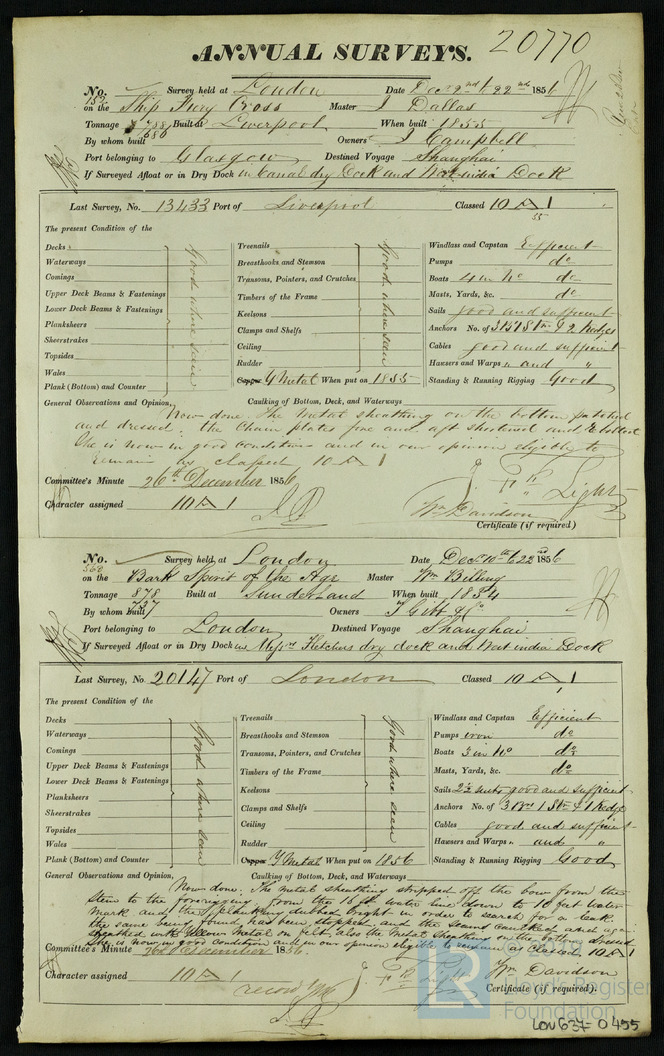 ANNUAL SURVEYS. 20770
No. 152 Survey held at London Date Dec 2nd to 22nd 1856
on the Ship Fiery Cross Master J Dallas
Tonnage 788 Built at Liverpool When built 1855
686
By whom built Owners J Campbell
Port belonging to Glasgow Destined Voyage Shanghai
If Surveyed Afloat or in Dry Dock in Canal dry Dock and West india Dock
Last Survey, No. 13433 Port of Liverpool Classed 10 A 1
55
The present Condition of the
Decks
Waterways
Comings
Upper Deck Beams & Fastenings
Lower Deck Beams & Fastenings
Planksheers
Sheerstrakes
Topsides
Wales
Plank (Bottom) and Counter
Good where seen
Treenails
Breasthooks and Stemson
Transoms, Pointers, and Crutches
Timbers of the Frame
Keelsons
Clamps and Shelfs
Ceiling
Rudder
Copper Y Metal When put on 1855
Good where seen
Windlass and Capstan Efficient
Pumps do
Boats 4 in No do
Masts, Yards, &c. do
Sails good and sufficient
Anchors No. of 3 B 1 St & 2 Kedges
Cables good and sufficient
Hawsers and Warps " and "
Standing & Running Rigging Good
General Observations and Opinion, Caulking of Bottom, Deck, and Waterways
Now done. The metal sheathing on the bottom patched
and dressed; the Chain plates fore and aft shortened and rebolted
She is now in good condition and in our opinion eligible to
remain as classed 10 A 1
Committee's Minute 26th December 1856
Character assigned 10 A 1
J. Light
Wm Davidson
Certificate (if required)
No. 560 Survey held at London Date Dec 10th to 22nd 1856
on the Bark Spirit of the Age Master Wm Billing
Tonnage 878 Built at Sunderland When built 1854
737
By whom built Owners T Gibb & Co
Port belonging to London Destined Voyage Shanghai
If Surveyed Afloat or in Dry Dock in Messrs Fletchers dry dock and West india Dock
Last Survey, No 20147 Port of London Classed 10 A 1
The present Condition of the
Decks
Waterways
Comings
Upper Deck Beams & Fastenings
Lower Deck Beams & Fastenings
Planksheers
Sheerstrakes
Topsides
Wales
Plank (Bottom) and Counter
Good where seen
Treenails
Breasthooks and Stemson
Transoms, Pointers, and Crutches
Timbers of the Frame
Keelsons
Clamps and Shelfs
Ceiling
Rudder
Copper Y Metal When put on 1856
Good where seen
Windlass and Capstan Efficient
Pumps iron do
Boats 3 in No do
Masts, Yards, &c. do
Sails 2½ suits good and sufficient
Anchors No. of 3 Br 1 St & 1 Kedge
Cables good and sufficient
Hawsers and Warps " and "
Standing & Running Rigging Good
General Observations and Opinion, Caulking of Bottom, Deck, and Waterways
Now done. The metal sheathing stripped off the bow from the
stem to the forerigging from the 16 ft water line down to 10 feet water
mark and the planking dubbed bright in order to search for a leak
the same being found has been stopped and the seams caulked and again
sheathed with Yellow metal on felt, also the metal sheathing on the bottom dressed
She is now in good condition and in our opinion eligible to remain as classed. 10 A 1
Committee's Minute 26th December 1856.
Character assigned 10 A 1
Wm Davidson
Certificate (if required).
LR
Lloyd's Register
Foundation
LON637-0455